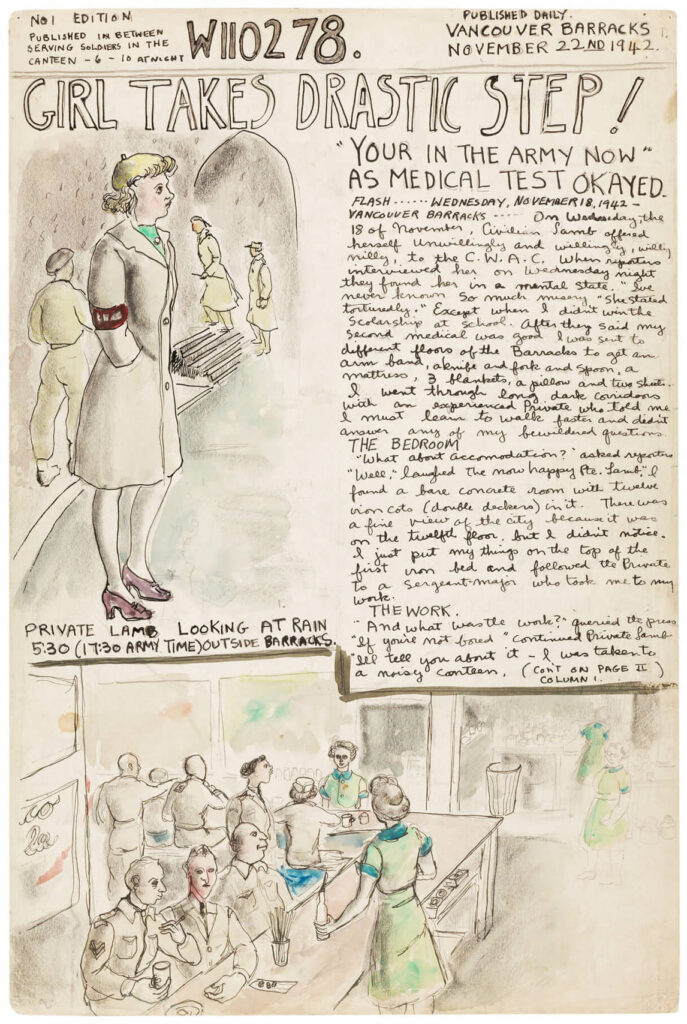 NO 1 EDITION
PUBLISHED IN BETWEEN
SERVING SOLDIERS IN THE
CANTEEN - 6 - 10 AT NIGHT
W110278.
PUBLISHED DAILY.
VANCOUVER BARRACKS
NOVEMBER 22ND 1942.
GIRL TAKES DRASTIC STEP!
"YOUR IN THE ARMY NOW"
AS MEDICAL TEST OKAYED.
FLASH ...... WEDNESDAY, NOVEMBER 18, 1942 -
VANCOUVER BARRACKS ..... On Wednesday, the
18 of November, Civilian Lamb offered
herself unwillingly and willingly, willy
nilly, to the C.W.A.C. When reporters
interviewed her on Wednesday night
they found her in a mental state. "Ive
never known so much misery "She stated
torturedly." Except when I didn't win the
Scolarship at school. After they said my
second medical was good I was sent to
different floors of the Barracks to get an
arm band, a knife and fork and spoon, a
mattress, 3 blankets, a pillow and two sheets.
I went through long dark corridoors
with an experienced Private who told me
I must learn to walk faster and didn't
answer any of my bewildered questions.
THE BEDROOM
"What about accomodation?" asked reporters
"Well," laughed the now happy Pte. Lamb, "I
found a bare concrete room with twelve
iron cots (double deckers) in it. There was
a fine view of the city because it was
on the twelfth floor, but I didn't notice.
I just put my things on the top of the
first iron bed and followed the Private
to a Sergeant-major who took me to my
work.
THE WORK.
"And what was the work?" queried the press
"If you're not bored "continued Private Lamb
"I'll tell you about it - I was taken to
a noisy canteen. (CON'T ON PAGE II
COLUMN 1. )
PRIVATE LAMB LOOKING AT RAIN
5:30 (17:30 ARMY TIME) OUTSIDE BARRACKS.